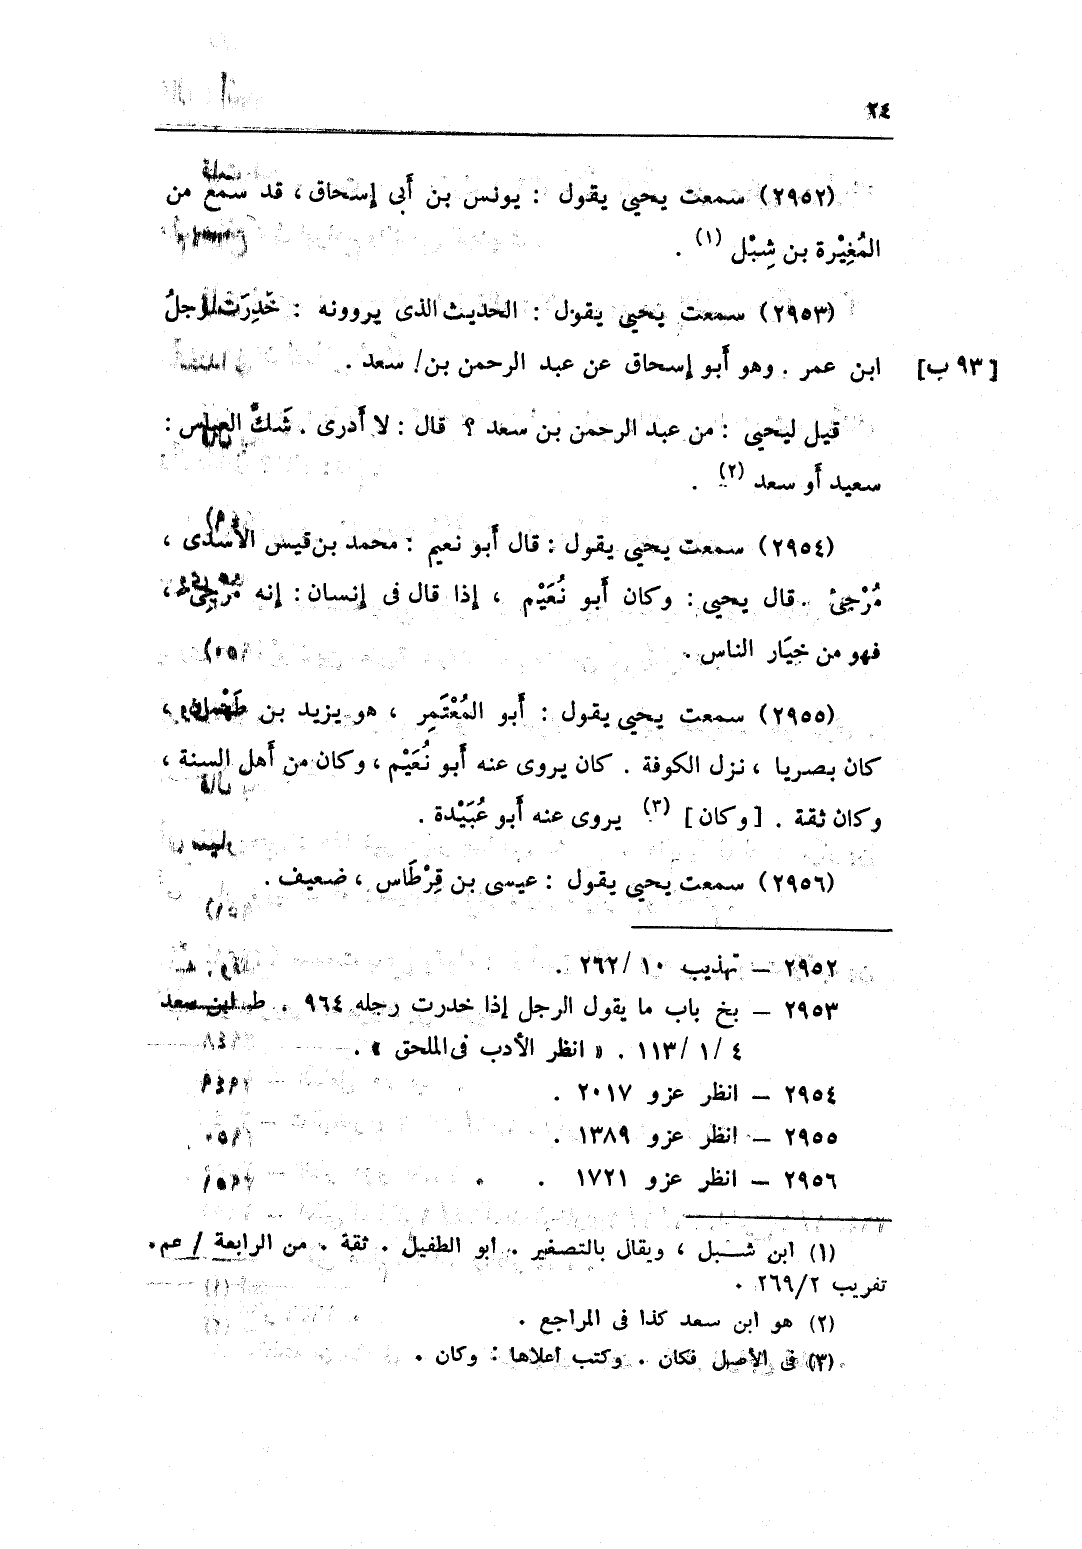 ٢٤
(٢٩٥٢) سمعت يحيى يقول : يونس بن أَبى إسحاق ، قد سمع من
المُغِيْرة بن شِبْل (١) .
(٢٩٥٣) سمعت يحيى يقول : الحديث الذى يروونه : خَدِرَت رِجلُ
ابن عمر . وهو أَبو إسحاق عن عبد الرحمن بن/ سعد . [٩٣ ب]
قيل ليحيى : من عبد الرحمن بن سعد ؟ قال : لا أَدرى . شَكَّ العباس :
سعيد أَو سعد (٢) .
(٢٩٥٤) سمعت يحيى يقول : قال أَبو نعيم : محمد بن قيس الأَسدى ،
مُرْجئ . قال يحيى : وكان أَبو نُعَيْم ، إذا قال فى إنسان : إنه مُرْجِئ ،
فهو من خِيَار الناس .
(٢٩٥٥) سمعت يحيى يقول : أَبو المُعْتَمِر ، هو يزيد بن طَهْمان ،
كان بصريا ، نزل الكوفة . كان يروى عنه أَبو نُعَيْم ، وكان من أَهل السنة ،
وكان ثقة . [وكان] (٣) يروى عنه أَبو عُبَيْدة .
(٢٩٥٦) سمعت يحيى يقول : عيسى بن قِرْطَاس ، ضعيف .
٢٩٥٢ — تهذيب ١٠/ ٢٦٢ .
٢٩٥٣ — بخ باب ما يقول الرجل إذا خدرت رجله ٩٦٤ . ط ابن سعد
٤ /١/ ١١٣ . « انظر الأدب فى الملحق » .
٢٩٥٤ — انظر عزو ٢٠١٧ .
٢٩٥٥ — انظر عزو ١٣٨٩ .
٢٩٥٦ — انظر عزو ١٧٢١ .
(١) ابن شبل ، ويقال بالتصغير . ابو الطفيل . ثقة . من الرابعة / عم .
تقريب ٢٦٩/٢ .
(٢) هو ابن سعد كذا فى المراجع .
(٣) فى الأصل فكان . وكتب اعلاها : وكان .